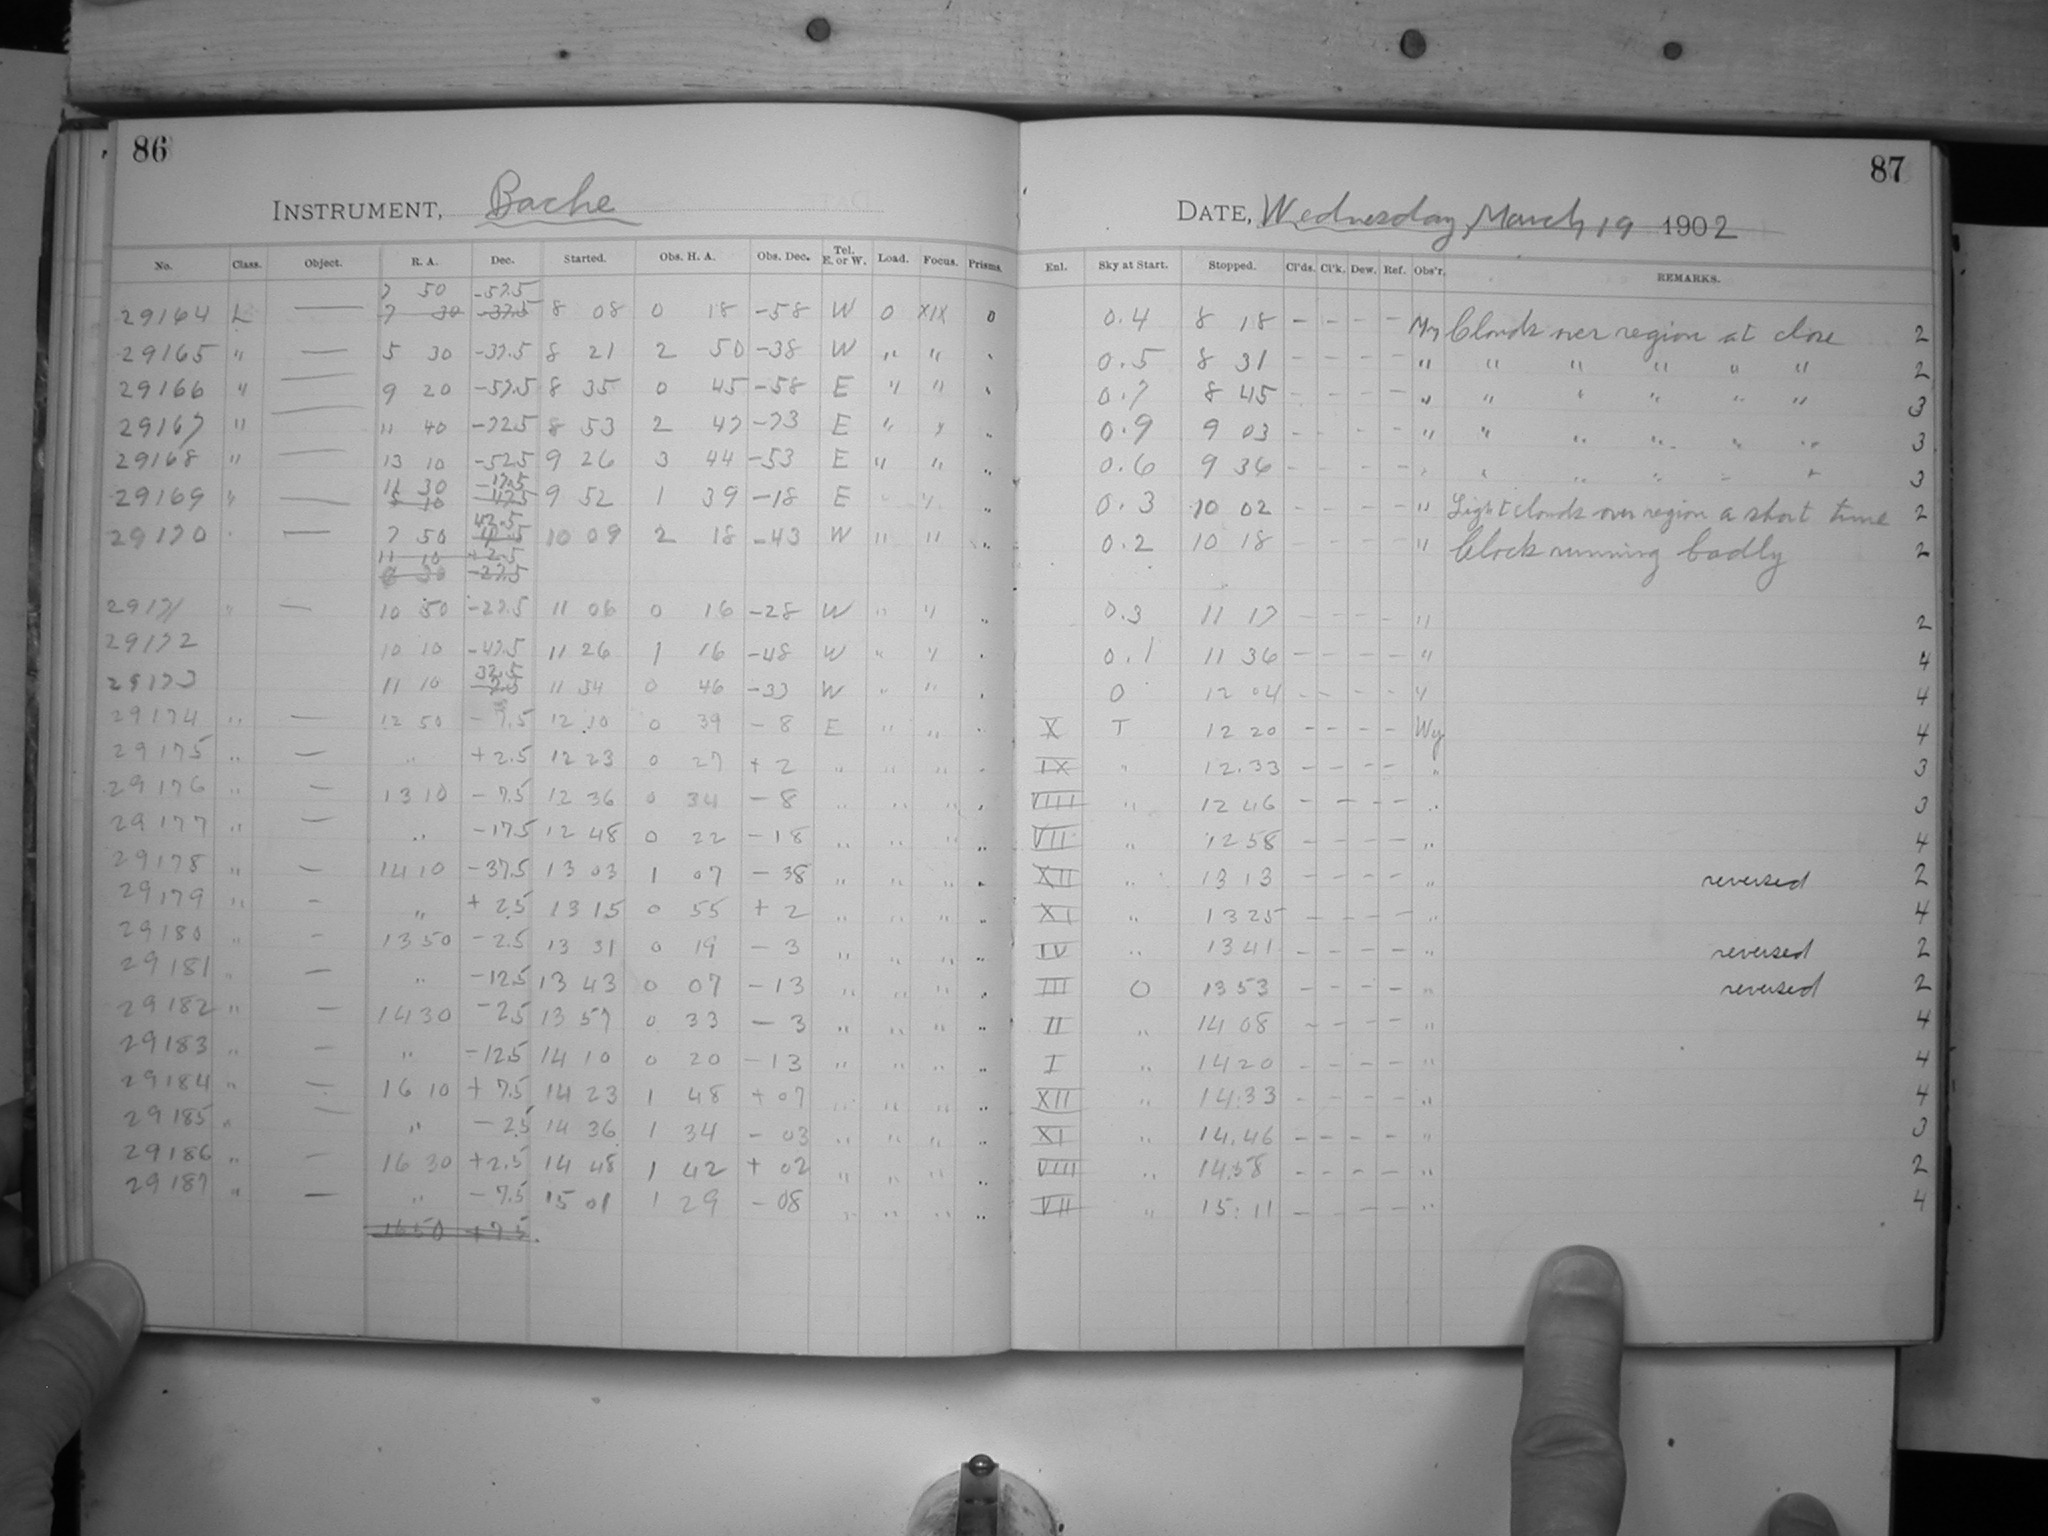 86
INSTRUMENT, Bache
No. Class. Object. R. A. Dec. Started. Obs. H. A. Obs. Dec. Tel. E. or W. Load. Focus. Prisms.
7 50 -57.5
29164 L — 7 30 -37.5 8 08 0 18 -58 W 0 XIX 0
29165 " — 5 30 -37.5 8 21 2 50 -38 W " " "
29166 " — 9 20 -57.5 8 35 0 45 -58 E " " "
29167 " — 11 40 -72.5 8 53 2 47 -73 E " " "
29168 " — 13 10 -52.5 9 26 3 44 -53 E " " "
11 30 -17.5
29169 " — 9 52 1 39 -18 E " " "
42.5
29170 " — 7 50 10 09 2 18 -43 W " " "
11 10 +2.5
-27.5
29171 " — 10 50 -27.5 11 06 0 16 -28 W " " "
29172 10 10 -47.5 11 26 1 16 -48 W " " "
32.5
29173 11 10 11 54 0 46 -33 W " " "
29174 " — 12 50 -7.5 12 10 0 39 -8 E " " "
29175 " — " +2.5 12 23 0 27 +2 " " " "
29176 " — 13 10 -7.5 12 36 0 34 -8 " " " "
29177 " — " -17.5 12 48 0 22 -18 " " " "
29178 " — 14 10 -37.5 13 03 1 07 -38 " " " "
29179 " — " +2.5 13 15 0 55 +2 " " " "
29180 " — 13 50 -2.5 13 31 0 19 -3 " " " "
29181 " — " -12.5 13 43 0 07 -13 " " " "
29182 " — 14 30 -2.5 13 57 0 33 -3 " " " "
29183 " — " -12.5 14 10 0 20 -13 " " " "
29184 " — 16 10 +7.5 14 23 1 48 +07 " " " "
29185 " — " -2.5 14 36 1 34 -03 " " " "
29186 " — 16 30 +2.5 14 48 1 42 +02 " " " "
29187 " — " -7.5 15 01 1 29 -08 " " " "
16 50 +7.5
87
DATE, Wednesday, March 19 1902
Enl. Sky at Start. Stopped. Cl'ds. Cl'k. Dew. Ref. Obs'r. REMARKS.
0.4 8 18 - - - - My Clouds over region at close 2
0.5 8 31 - - - - " " " " " " 2
0.7 8 45 - - - - " " " " " " 3
0.9 9 03 - - - - " " " " " " 3
0.6 9 36 - - - - " " " " " " 3
0.3 10 02 - - - - " Light clouds over region a short time 2
0.2 10 18 - - - - " Clock running badly 2
0.3 11 17 - - - - " 2
0.1 11 36 - - - - " 4
0 12 04 - - - - " 4
X T 12 20 - - - - Wy 4
IX " 12.33 - - - - " 3
VIII " 12 46 - - - - " 3
VII " 12 58 " 4
XII " 13 13 - - - - " reversed 2
XI " 13 25 - - - - " 4
IV " 13 41 - - - - " reversed 2
III O 13 53 - - - - " reversed 2
II " 14 08 - - - - " 4
I " 14 20 - - - - " 4
XII " 14:33 - - - - " 4
XI " 14.46 - - - - " 3
VIII " 14.58 - - - - " 2
VII " 15:11 - - - - " 4